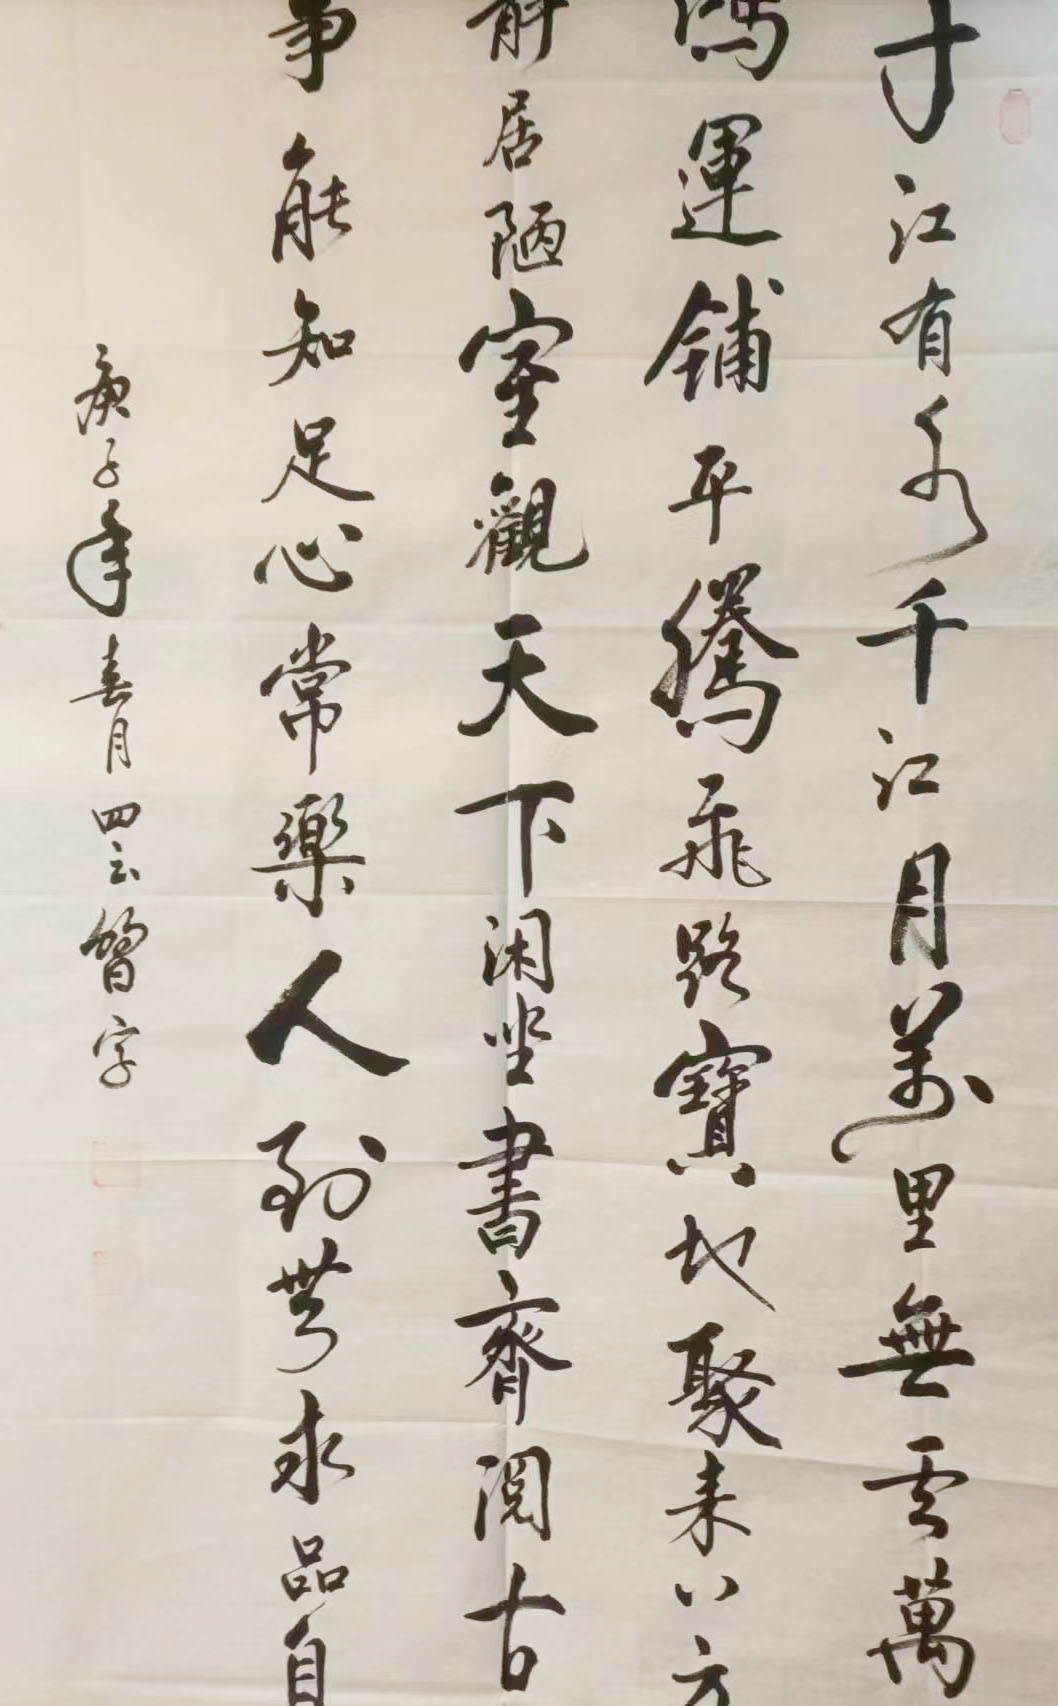 千江有水千江月萬里無雲萬
鴻運鋪平騰飛路寶地聚来八方
斛居陋室觀天下闲坐書齊閲古
爭能知足心常樂人到無求品自
庚子年春月四云智字